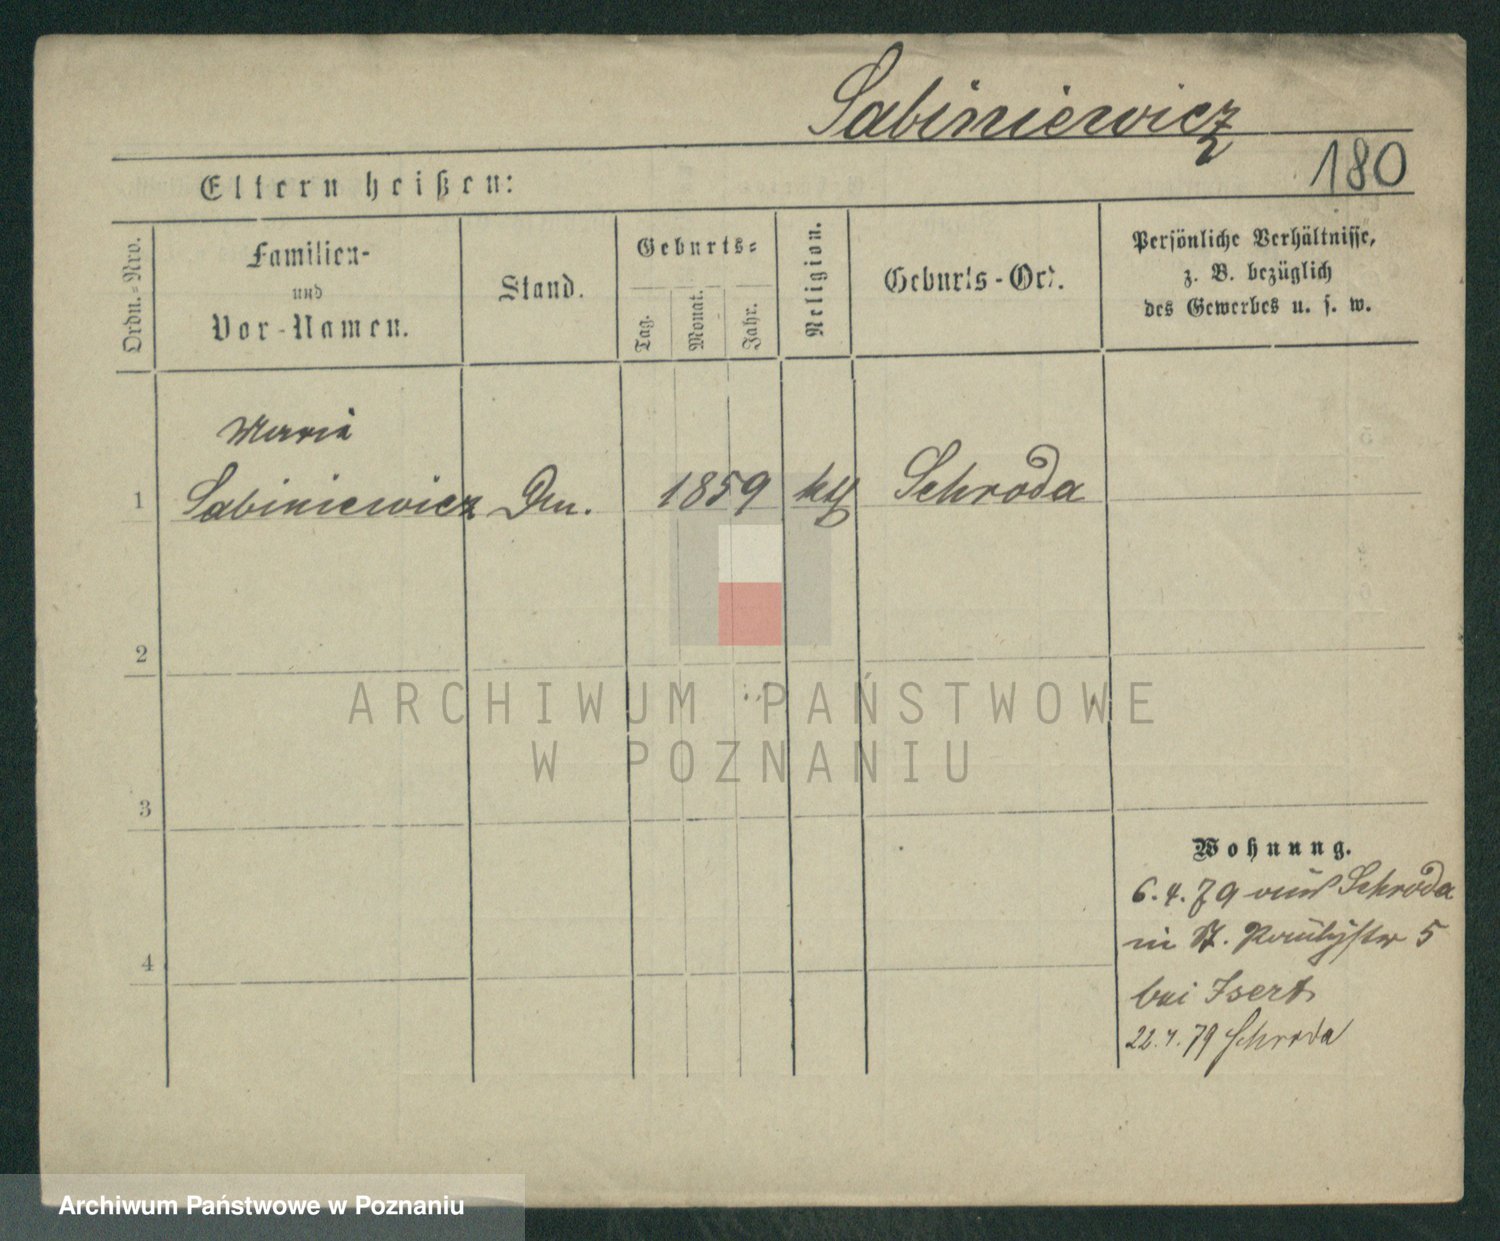 Sabiniewicz
180
Eltern heißen:
Ordn.-Nro.
Familien-
und
Vor-Namen.
Stand.
Geburts-
Tag.
Monat.
Jahr.
Religion.
Geburts-Ort.
Persönliche Verhältnisse,
z. B. bezüglich
des Gewerbes u. s. w.
Maria
1 Sabiniewicz 1859 kth Schroda
2
ARCHIWUM PAŃSTWOWE
W POZNANIU
3
Wohnung.
6.4.79 aus Schroda
in St. 5
4
bei Isert
22.4.79 Schroda
Archiwum Państwowe w Poznaniu